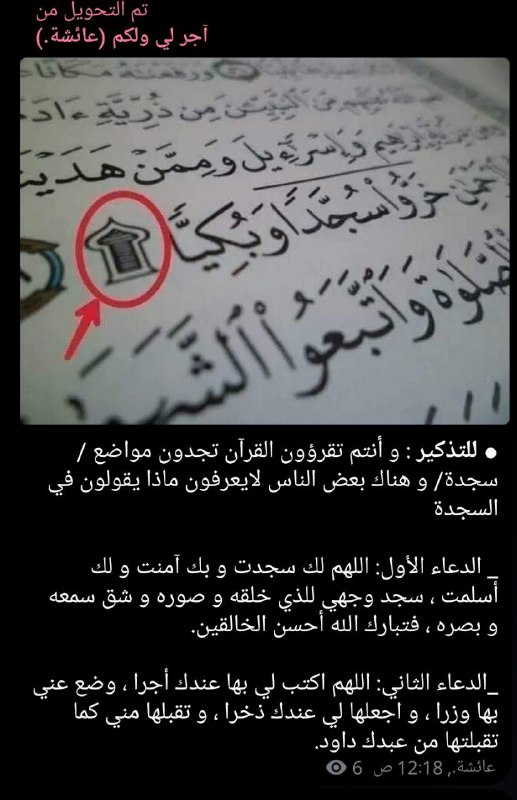 تم التحويل من
آجر لي ولكم (عائشة.)
ورفعنه مكانا
من النبيين من ذرية ءاد
وإسرءيل وممن هدين
خروا سجدا وبكيا
الصلوة واتبعوا الش
● للتذكير : و أنتم تقرؤون القرآن تجدون مواضع /
سجدة/ و هناك بعض الناس لايعرفون ماذا يقولون في
السجدة
_ الدعاء الأول: اللهم لك سجدت و بك آمنت و لك
أسلمت ، سجد وجهي للذي خلقه و صوره و شق سمعه
و بصره ، فتبارك الله أحسن الخالقين.
_الدعاء الثاني: اللهم اكتب لي بها عندك أجرا ، وضع عني
بها وزرا ، و اجعلها لي عندك ذخرا ، و تقبلها مني كما
تقبلتها من عبدك داود.
عائشة., 12:18 ص 6